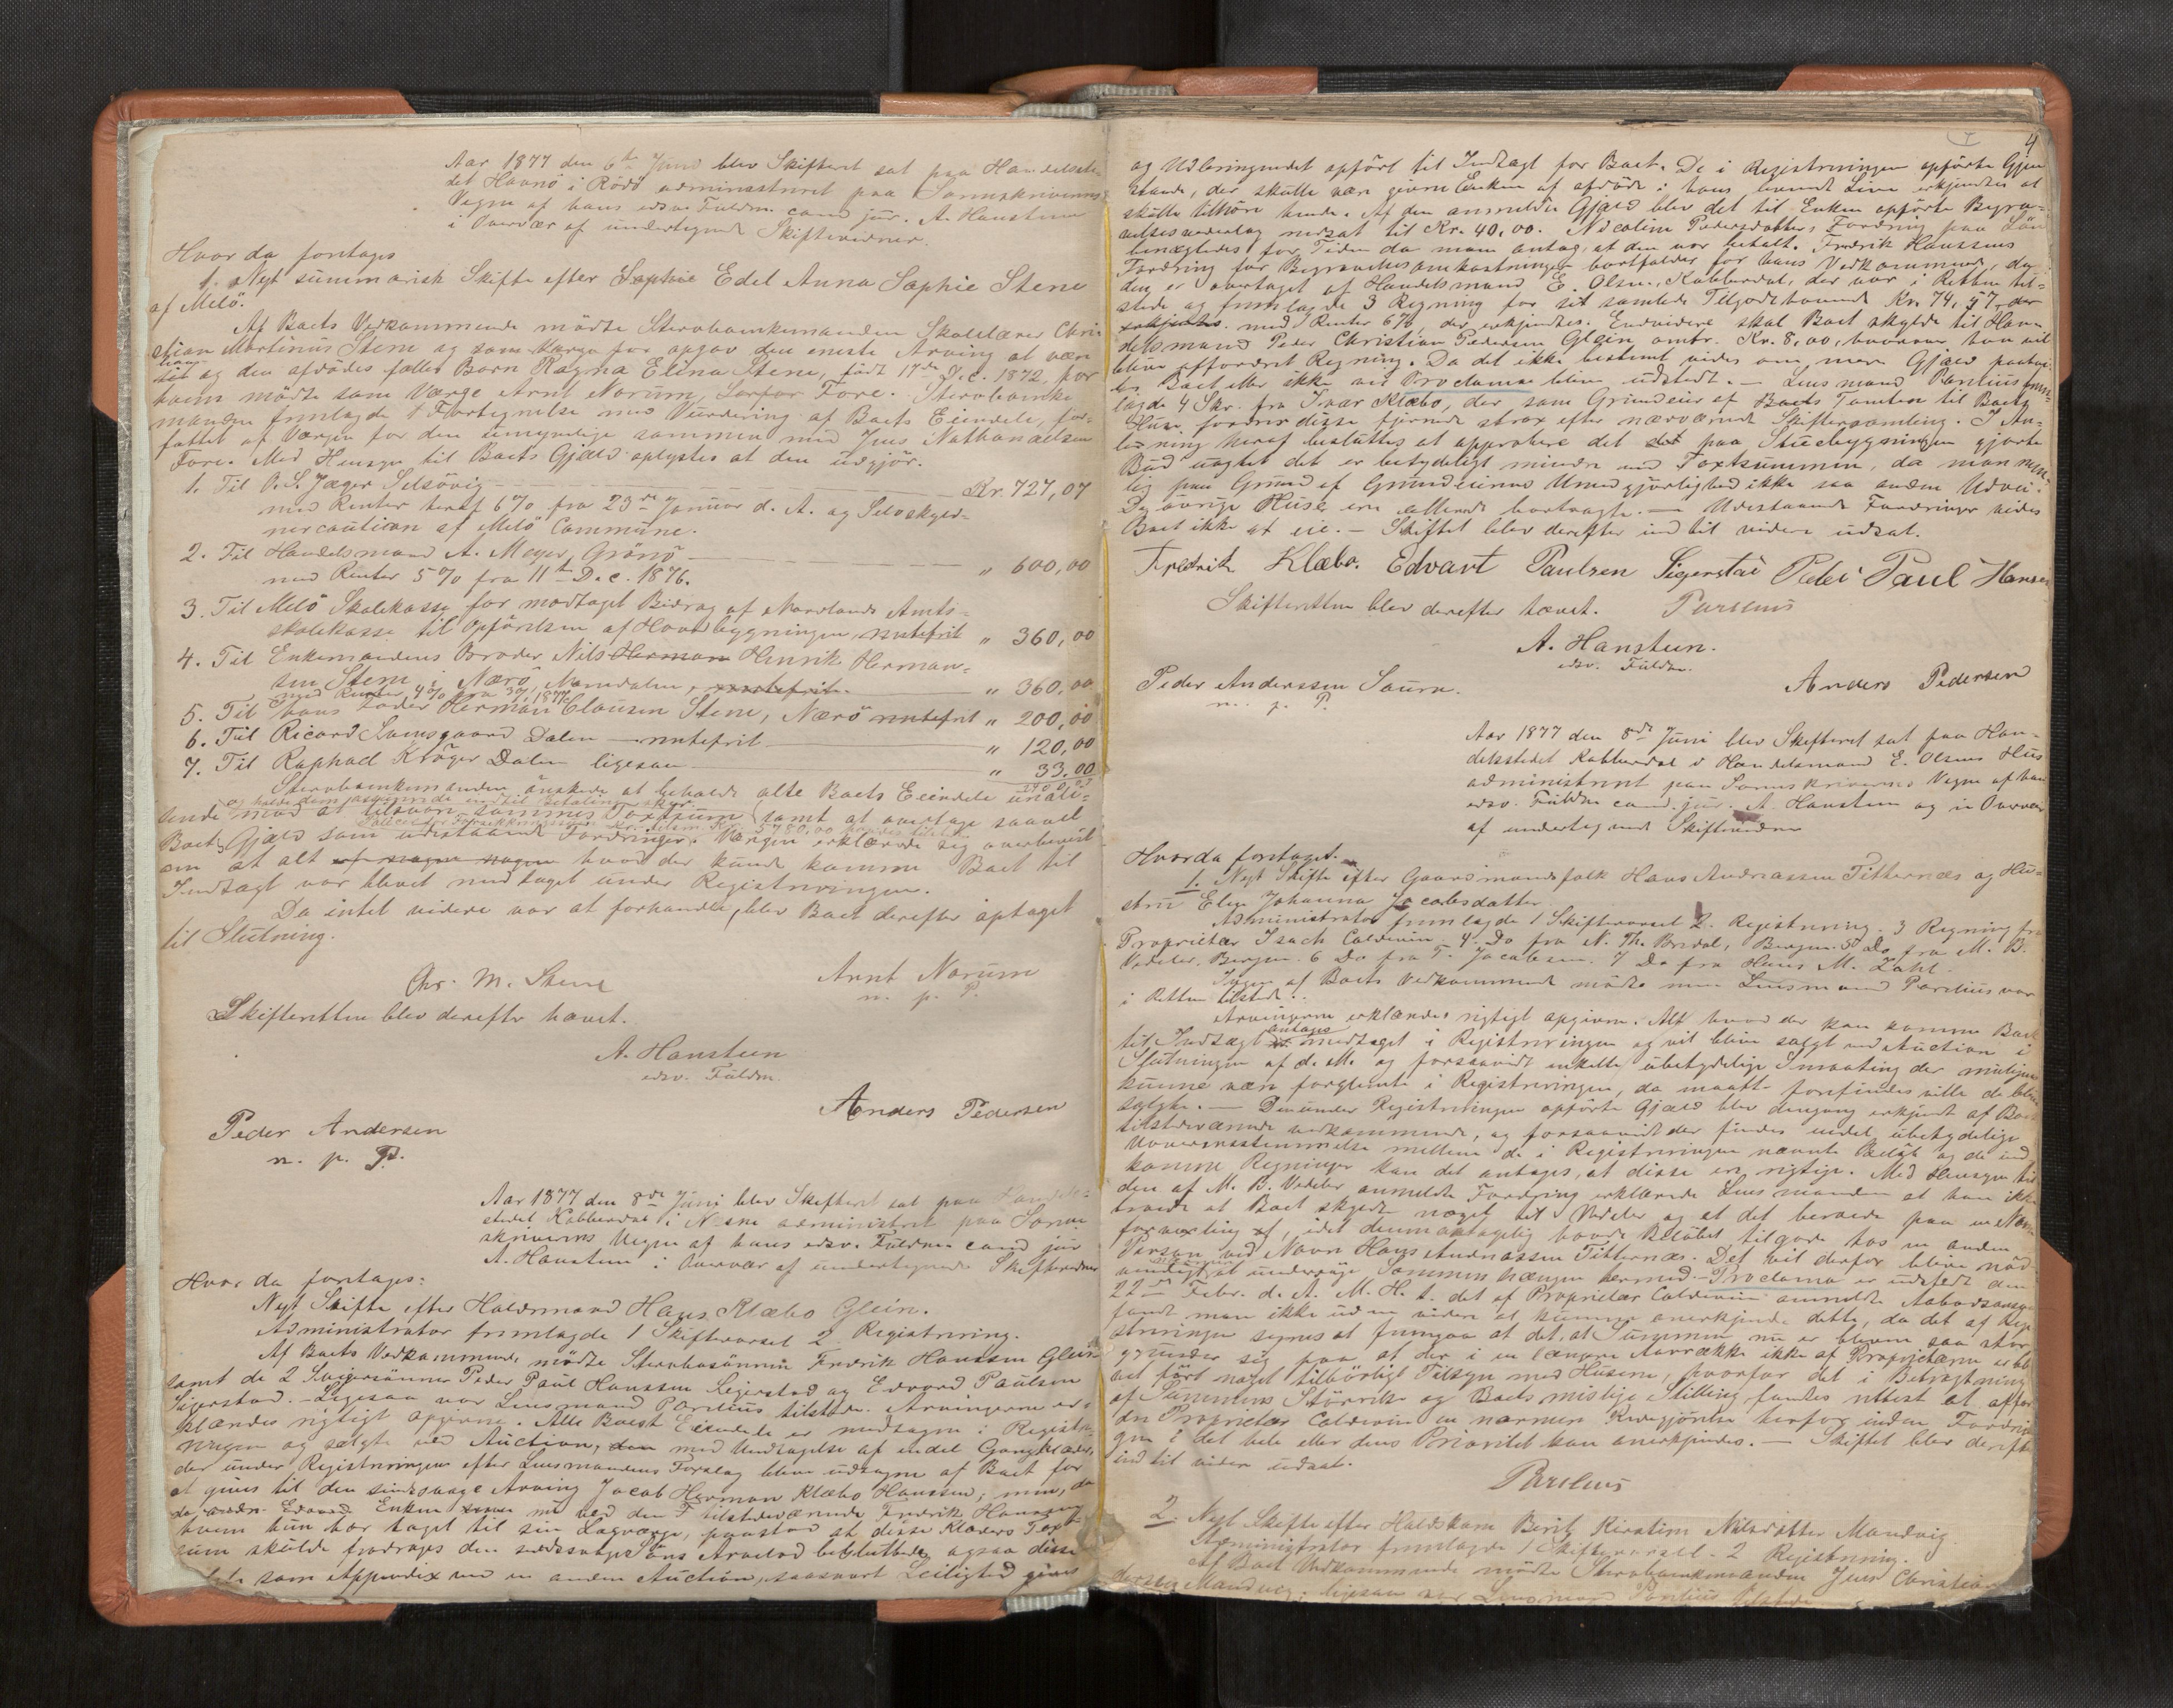 Aar 1877 den 6te Juni blev Skifteret sat paa Handelsste-
det Havnö i Rödö administreret paa Sorenskriverens
Vegne af hans edsv. Fuldm. cand. jur. A. Hansteen
i Overvær af undertegnede Skiftevidner.
Hvor da foretages
1. Nyt summarisk Skifte efter Sophie Edel Anna Sophie Stene
af Melö.
Af Boets Vedkommende mödte Sterboenkemanden Skolelærer Chri-
stian Martinus Stene og som Værge for opgav den eneste Arving at være
sit og den afdödes fælles Barn Ragna Elina Stene, födt 17de Dec. 1872, for
hvem mödte som Værge Arnt Norum, Sörfor Fore. Sterboenke-
manden fremlagde 1 Fortegnelse med Vurdering af Boets Eiendele, for-
fattet af Værgen for den umyndige sammen med Jens Nathanaelsen
Fore. Med Hensyn til Boets Gjæld oplystes at den udgjör.
1. Til O. S. Jæger Selsövig - Kr. 727,07
med Renter heraf 6% fra 23de Januar d. A. og Selvskyld-
nercaution af Melö Commune.
2. Til Handelsmand A. Meyer, Grönö - " 600,00
med Renter 5% fra 11te Dec. 1876.
3. Til Melö Skolekasse for modtaget Bidrag af Nordlands Amts-
skolekasse til Opförelsen af Hovedbygningen, rentefrit " 360,00
4. Til Enkemandens Broder Nils Herman Henrik Herman-
sen Stene i Nærö, Namdalen, rentefrit. - " 360,00
med Renter 4% fra 1877
5. Til hans Fader Herman Clausen Stene, Nærö rentefrit " 200,00
6. Til Ricard Svensgaard Dalen - rentefrit - " 120,00
7. Til Raphael Kröger Dalen ligesaa - " 33,00
Sterboenkemanden önskede at beholde alle Boets Eiendele uvall-
ende mod at tilsvare sammes Taxtsum samt at overtage saavel
Boets Gjæld som udestaaende Fordringer. Værgen erklærede sig overbevist
om at alt hvad der kunde komme Boet til
Indtægt var blevet medtaget under Registreringen.
Da intet videre var at forhandle, blev Boet derefter optaget
til Slutning.
Chr. M. Stene
Arnt Norum
m. p. P.
Skifteretten blev derefter hævet.
A. Hansteen
edsv. Fuldm.
Anders Pedersen
Peder Andersen
m. p. P.
Aar 1877 den 8de Juni blev Skifteret sat paa Handels-
stedet Kobberdal i Nesne administreret paa Soren-
skriverens Vegne af hans edsv. Fuldm. cand jur
A. Hansteen i Overvær af undertegnede Skiftevidner
Hvor da foretages:
Nyt Skifte efter Holdsmand Hans Klæbo Glein.
Administrator fremlagde 1 Skiftevarsel 2 Registrering.
Af Boets Vedkommende mödte Sterbosönnen Fredrik Hanssen Glein
samt de 2 Svigersönner Peder Paul Hanssen Segerstad og Edvard Paulsen
Sigerstad. - Ligesaa var Lensmand Parelius tilstede. Arvingerne er-
klæredes rigtigt opgivne. Alle Boets Eiendele er medtagne i Registre-
ringen og solgte ved Auction, den med Undtagelse af endel Gangklæder,
der under Registreringen efter Lensmandens Forslag bleve udtagne af Boet for
at gives til den sindssvage Arving Jacob Herman Klæbo Hanssen; men, da
Enken nu ved den tilstedeværende Fredrik Hanssen
hvem hun har taget til sin Lagværge, paastod at disse Klæders Taxt-
sum skulde fradrages den sindssvage Söns Arvelod besluttedes ogsaa disse
som Appendix ved en anden Auction, saasnart Leilighed gives
4
og Udbringendet opfört til Indtægt for Boet. De i Registreringen opförte Gjen-
stande, der skulle være givne Enken af afdöde i hans levende Live erkjendtes at
skulle tilhöre hende. Af den anmeldte Gjæld blev det til Enken opförte Begra-
velsesvederlag nedsat til Kr. 40,00. Nicoline Pedersdatters Fordring paa Lön
benægtedes for Tiden da man antog, at den var betalt. Fredrik Hanssens
Fordring for Begravelsesomkostninger bortfalder for hans Vedkommende, da
den er overtaget af Handelsmand E. Olsen, Kobberdal, der var i Retten til-
stede og fremlagde 3 Regning for sit samlede Tilgodehavende Kr. 74,57 der
erkjendtes. med Renter 6%, der erkjendtes. Endvidere skal Boet skylde til Han-
delsmand Peder Christian Pedersen Glein omtr. Kr. 8,00, hvorom han vil
blive affordret Regning. Da det ikke bestemt vides om mere Gjæld paahvi-
ler Boet eller ikke vil Proclama blive udstedt. - Lensmand Parelius frem-
lagde 4 Skr. fra Ivar Klæbo, der som Grundeier af Boets Tomten til Boets
Huse fordrer disse fjernede strax efter nærværende Skiftesamling. I An-
ledning heraf besluttes at approbere det det paa Stuebygningen gjorte
Bud uagtet det er betydeligt mindre end Taxtsummen, da man nem-
lig paa Grund af Grundeierens Umedgjörlighed ikke saa anden Udvei.
De övrige Huse ere allerede borttagte. - Udestaaende Fordringer vides
Boet ikke at eie. - Skiftet blev derefter ind til videre udsat.
Fredrik Klæbo. Edvart Paulsen Sigerstad Peder Paul Hansen
Skifteretten blev derefter hævet. Parelius
A. Hansteen.
edsv. Fuldm.
Peder Anderssen Saura.
m. p. P.
Anders Pedersen
Aar 1877 den 8de Juni blev Skifteret sat paa Han-
delsstedet Kobberdal i Handelsmand E. Olsens Hus
administreret paa Sorenskriverens Vegne af hans
edsv. Fuldm. cand. jur. A Hansteen og i Overvær
af undertegnede Skiftevidner
Hvor da foretages.
1. Nyt Skifte efter Gaardmandsfolk Hans Andreassen Titternæs og Hu-
stru Elen Johanna Jacobsdatter
Administrator fremlagde 1 Skiftevarsel 2. Registrering. 3 Regning fra
Proprietær Isach Coldevin 4. Do fra N. Th. Bredal, Bergen. 5 Do fra M. B.
Vedeler, Bergen. 6 Do fra T. Jacobsen. 7 Do fra Hans M. Zahl.
Ingen af Boets Vedkommende mödte men Lensmand Parelius var
i Retten tilstede.
Arvingerne erklæredes rigtigt opgivne. Alt hvad der kan komme Boet
til Indtægt antages medtaget i Registreringen og vil blive solgt ved Auction i
Slutningen af d. M. og forsaavidt enkelte ubetydelige Smaating der muligens
kunne være forglemte i Registreringen, da maatte forefindes ville de blive
solgte. - Den under Registreringen opförte Gjæld blev dengang erkjendt af Boets
tilstedeværende vedkommende, og forsaavidt der findes endel ubetydelige
Uoverensstemmelse mellem de i Registreringen nævnte Belöb og de ind-
komne Regninger kan det antages, at disse er rigtige. Med Hensyn til
den af M. B. Vedeler anmeldte Fordring erklærede Lensmanden at han ikke
troede at Boet skyldte noget til Vedeler og at det beroede paa en Navne-
forvexling, idet denne antagelig havde Belöbet tilgode hos en anden
Person ved Navn Hans Andreassen Titternæs. Det vil derfor blive nöd-
vendigt at undersöge Sammenhængen hermed. - Proclama er udstedt den
22de Febr. d. A. M. H. t. det af Proprietær Coldevin anmeldte Aabodsansvar
fandt man ikke uden videre at kunne anerkjende dette, da det af Regi-
streringen synes at fremgaa at det, at Summen nu er bleven saa stor
grunder sig paa at der i en længere Aarrække ikke af Proprietæren er ble-
vet fört noget tilbörligt Tilsyn med Husene, hvorfor det i Betragtning
af Summens Störrelse og Boets mislige Stilling fandtes rettest at affor-
dre Proprietær Coldevin en nærmere Redegjörelse herfor inden Fordrin-
gen i det hele eller dens Prioritet kan anerkjendes. - Skiftet blev derefter
ind til videre udsat.
Parelius
2. Nyt Skifte efter Holdskone Berit Kirstine Nilsdatter Mandvig
Administrator fremlagde 1 Skiftevarsel. 2 Registrering.
Af Boets Vedkommende mödte Sterboenkemanden Jens Christian
Mandvig, ligesaa var Lensmand Parelius tilstede